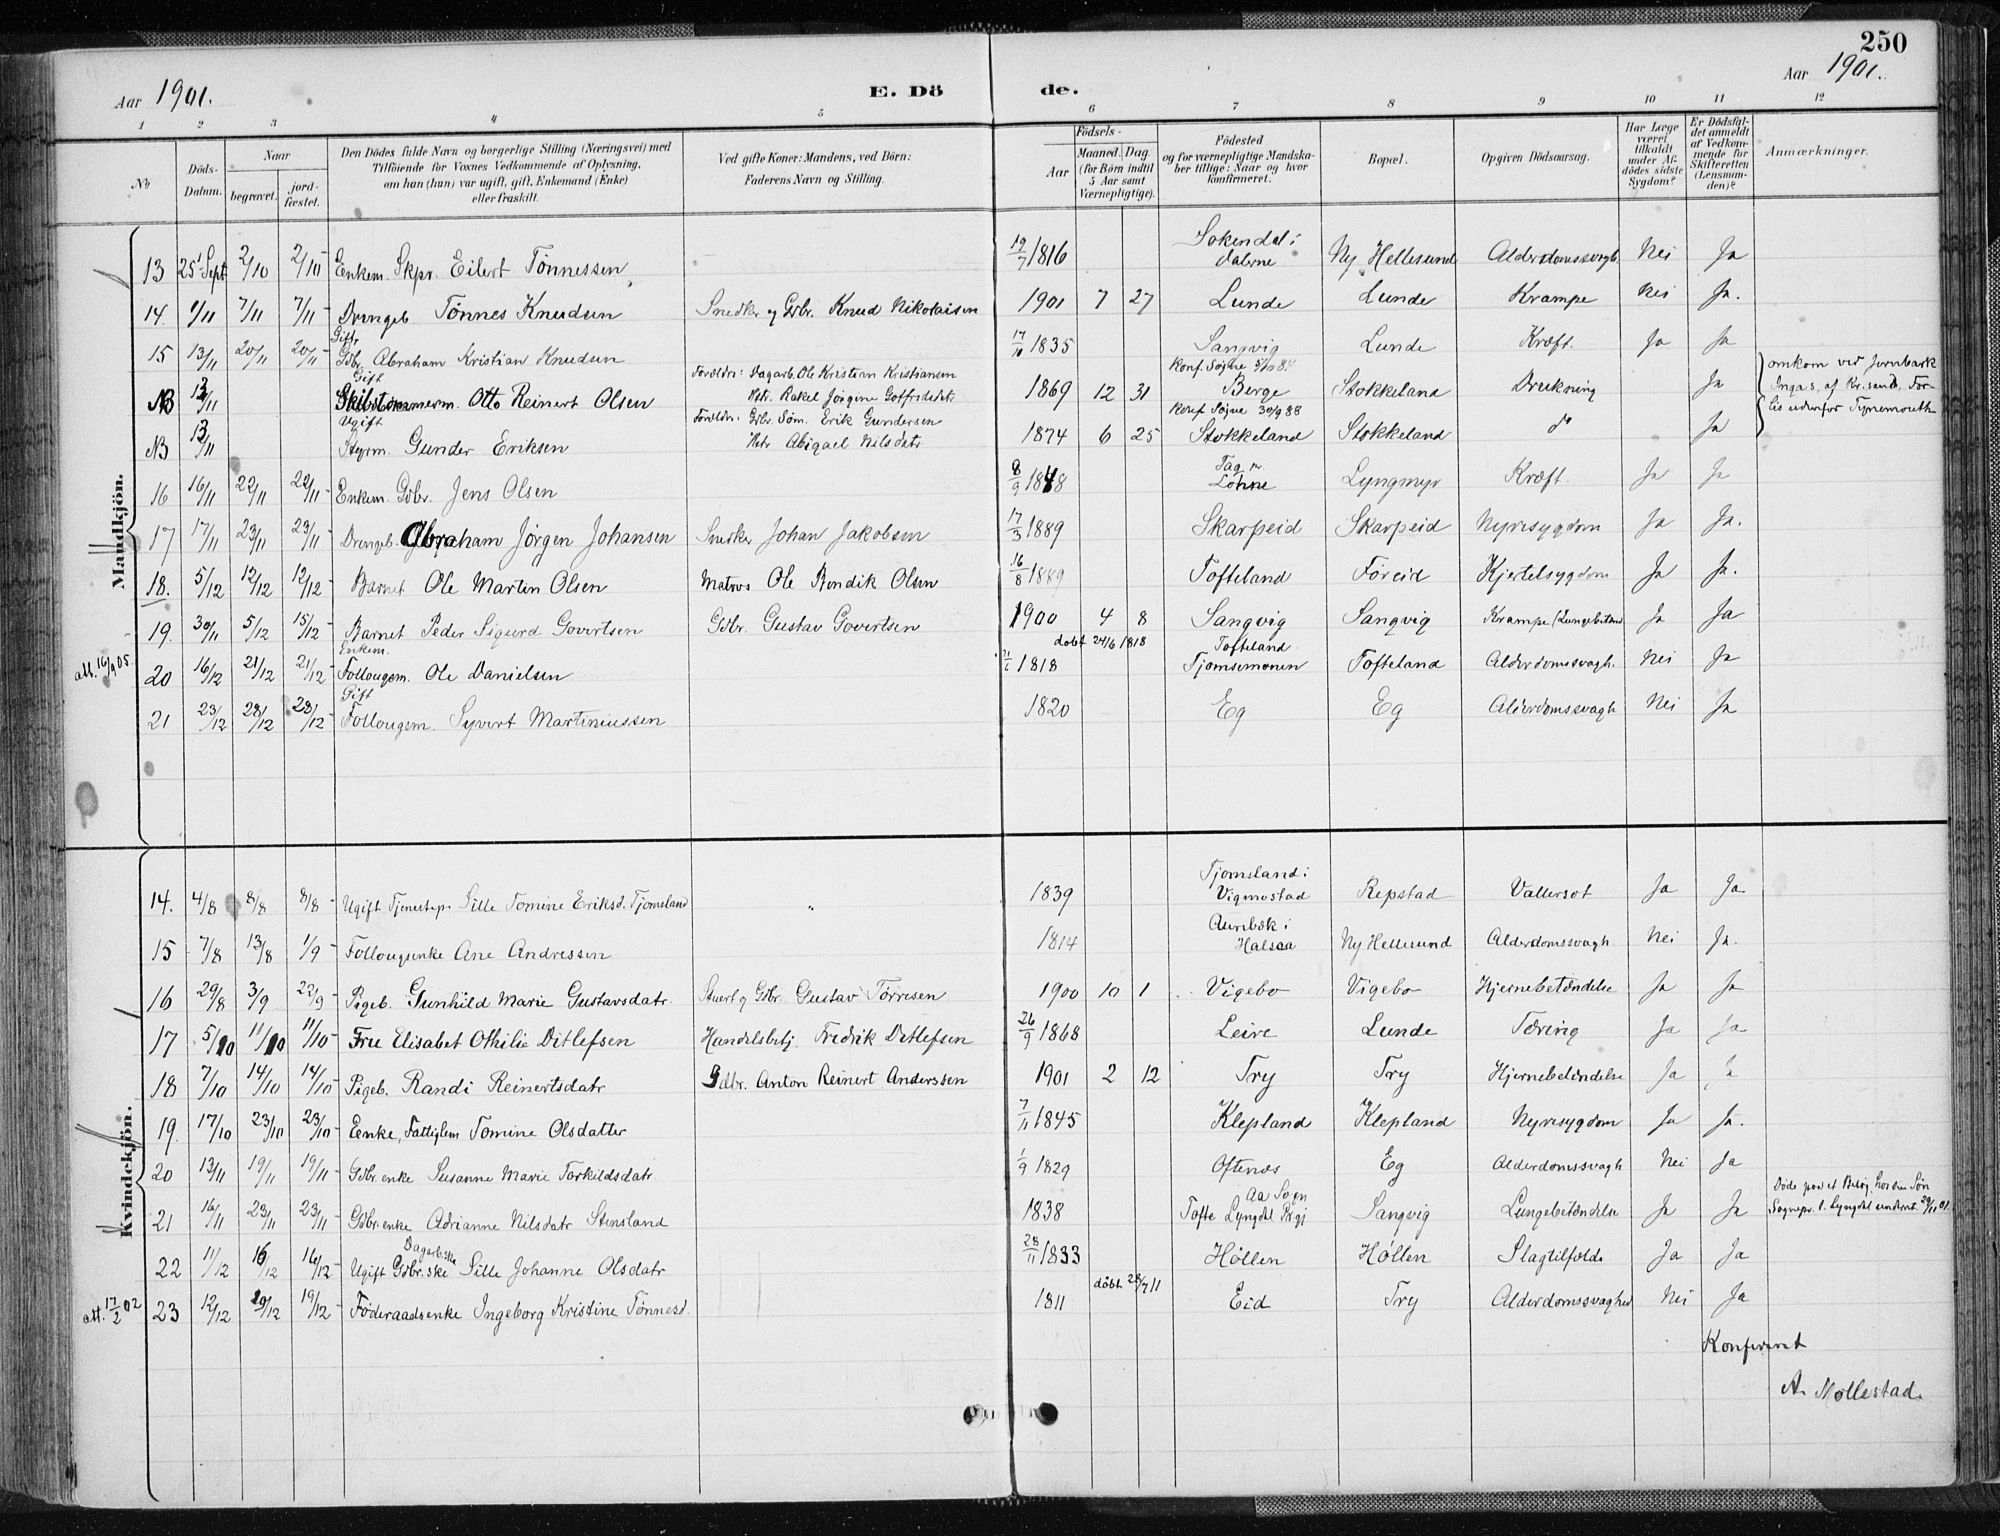 250
Aar 1901.
E. Dö de.
Aar 1901.
1 2 3 4 5 6 7 8 9 10 11 12
No
Döds-Datum.
Naar
begravet.
jord-fæstet.
Den Dödes fulde Navn og borgerlige Stilling (Næringsvei) med
Tilföiende for Voxnes Vedkommende af Oplysning,
om han (hun) var ugift, gift, Enkemand (Enke)
eller fraskilt.
Ved gifte Koner: Mandens, ved Börn:
Faderens Navn og Stilling.
Födsels-
Aar
Maaned. Dag
(for Börn indtil
5 Aar samt
Værnepligtige).
Födested
og for værnepligtige Mandska-
ber tillige: Naar og hvor
konfirmeret.
Bopæl.
Opgiven Dödsaarsag.
Har Læge
været
tilkaldt
under Af-
dödes sidste
Sygdom?
Er Dödsfal-
det anmeldt
af Vedkom-
mende for
Skifteretten
(Lensman-
den)?
Anmærkninger.
Mandkjön.
13 25 Sept 2/10 2/10 Enkem. Skpr. Eilert Tönnessen 19/7 1816 Sokendal i Dalerne Ny Hellesund Alderdomssvagh. Nei Ja
14. 1/11 7/11 7/11 Drengeb Tönnes Knudsen Snedker og Gdbr. Knud Nikolaisen 1901 7 27 Lunde Lunde Krampe Nei Ja.
15 13/11 20/11 20/11 Gift Gdbr Abraham Kristian Knudsen 17/10 1835 Sangvig Lunde Kræft. Ja Ja
NB 13/11 Gift Skibstømmerm. Otto Reinert Olsen Forældre: Dagarb. Ole Kristian Kristiansen Hstr. Rakel Jørgine Gotfredsdtr 1869 12 31 Konf. Søgne 5/10 84 Berge Stokkeland Drukning Ja
omkom ved Jernbark
Inga s, af Kr.sand, For-
lis udenfor Tynemouth
NB 13/11 Ugift Styrm. Gunder Eriksen Forældre: Gdbr Søm. Erik Gundersen Hstr Abigael Nilsdatr 1874 6 25 Konf Søgne 30/9 88 Stokkeland Stokkeland do Ja
16 16/11 22/11 22/11 Enkem. Gdbr. Jens Olsen 8/9 1848 Løhne Lyngmyr Kræft. Ja Ja
17 17/11 23/11 23/11 Drengeb. Abraham Jörgen Johansen Snedker Johan Jakobsen 17/3 1889 Skarpeid Skarpeid Nyresygdom Ja Ja.
18. 5/12 12/12 12/12 Barnet Ole Martin Olsen Matros Ole Bendik Olsen 16/8 1889 Tofteland Föreid Kjertelsygdom Ja Ja.
19. 30/11 5/12 15/12 Barnet Peder Sigurd Govertsen Gdbr. Gustav Govertsen 1900 4 8 Sangvig Sangvig Krampe (Lungebetænd Ja Ja
att. 16/9 05. 20 16/12 21/12 21/12 Enkem. Follougsm. Ole Danielsen 21/6 1818 døbt 24/6 1818 Tofteland Tjomsemonen Tofteland Alderdomssvagh. Nei Ja
21 23/12 28/12 28/12 Gift Follougsm. Syvert Martiniussen 1820 Eg Eg Alderdomssvagh Nei Ja
Kvindekjön.
14. 4/8 8/8 8/8 Ugift Tjenestep. Sille Tomine Eriksd. Tjomsland " 1839 Tjomsland i Vigmostad Repstad Vattersot Ja Ja
15 7/8 13/8 1/9 Follougsenke Ane Andressen 1814 Aurebæk i Halsaa Ny Hellesund Alderdomssvagh Nei Ja.
16 29/8 3/9 22/9 Pigeb. Gunhild Marie Gustavsdatr Stuert og Gdbr. Gustav Törresen 1900 10 1 Vigebo Vigebo Hjernebetændelse Ja Ja
17 5/10 11/10 11/10 Frue Elisabet Othilie Ditlefsen Handelsbetj. Fredrik Ditlefsen 26/9 1868 Leire Lunde Tæring Ja Ja
18 7/10 14/10 14/10 Pigeb. Randi Reinertsdatr Gdbr. Anton Reinert Anderssen 1901 2 12 Try Try Hjernebetændelse Ja Ja
19. 17/10 23/10 23/10 Eenke, Fattiglem Tomine Olsdatter 7/11 1845 Klepland Klepland Nyresygdom Ja Ja.
20 13/11 19/11 19/11 Gdbr.enke Susanne Marie Torkildsdatr 1/9 1829 Oftenæs Eg Alderdomssvagh Nei Ja
21 16/11 23/11 23/11 Gdbr.enke Adrianne Nilsdatr Stensland 1838 Aa Sogn Tofte Lyngdal Prgj Sangvig Lungebetændelse Ja Ja
Døde paa et Besøg hos en Søn
Sognepr. i Lyngdal underret. 29/11 01.
22 11/12 16/12 16/12 Ugift Gdbr.ske Dagarb.ske Sille Johanne Olsdatr 28/11 1833 Höllen Höllen Slagtilfælde Ja Ja
att. 17/2 02 23 12/12 19/12 19/12 Föderaadsenke Ingeborg Kristine Tönnesd. 1811 döbt 28/7 11 Eid Try Alderdomssvaghed Nei Ja
Konfereret
A. Mollestad.